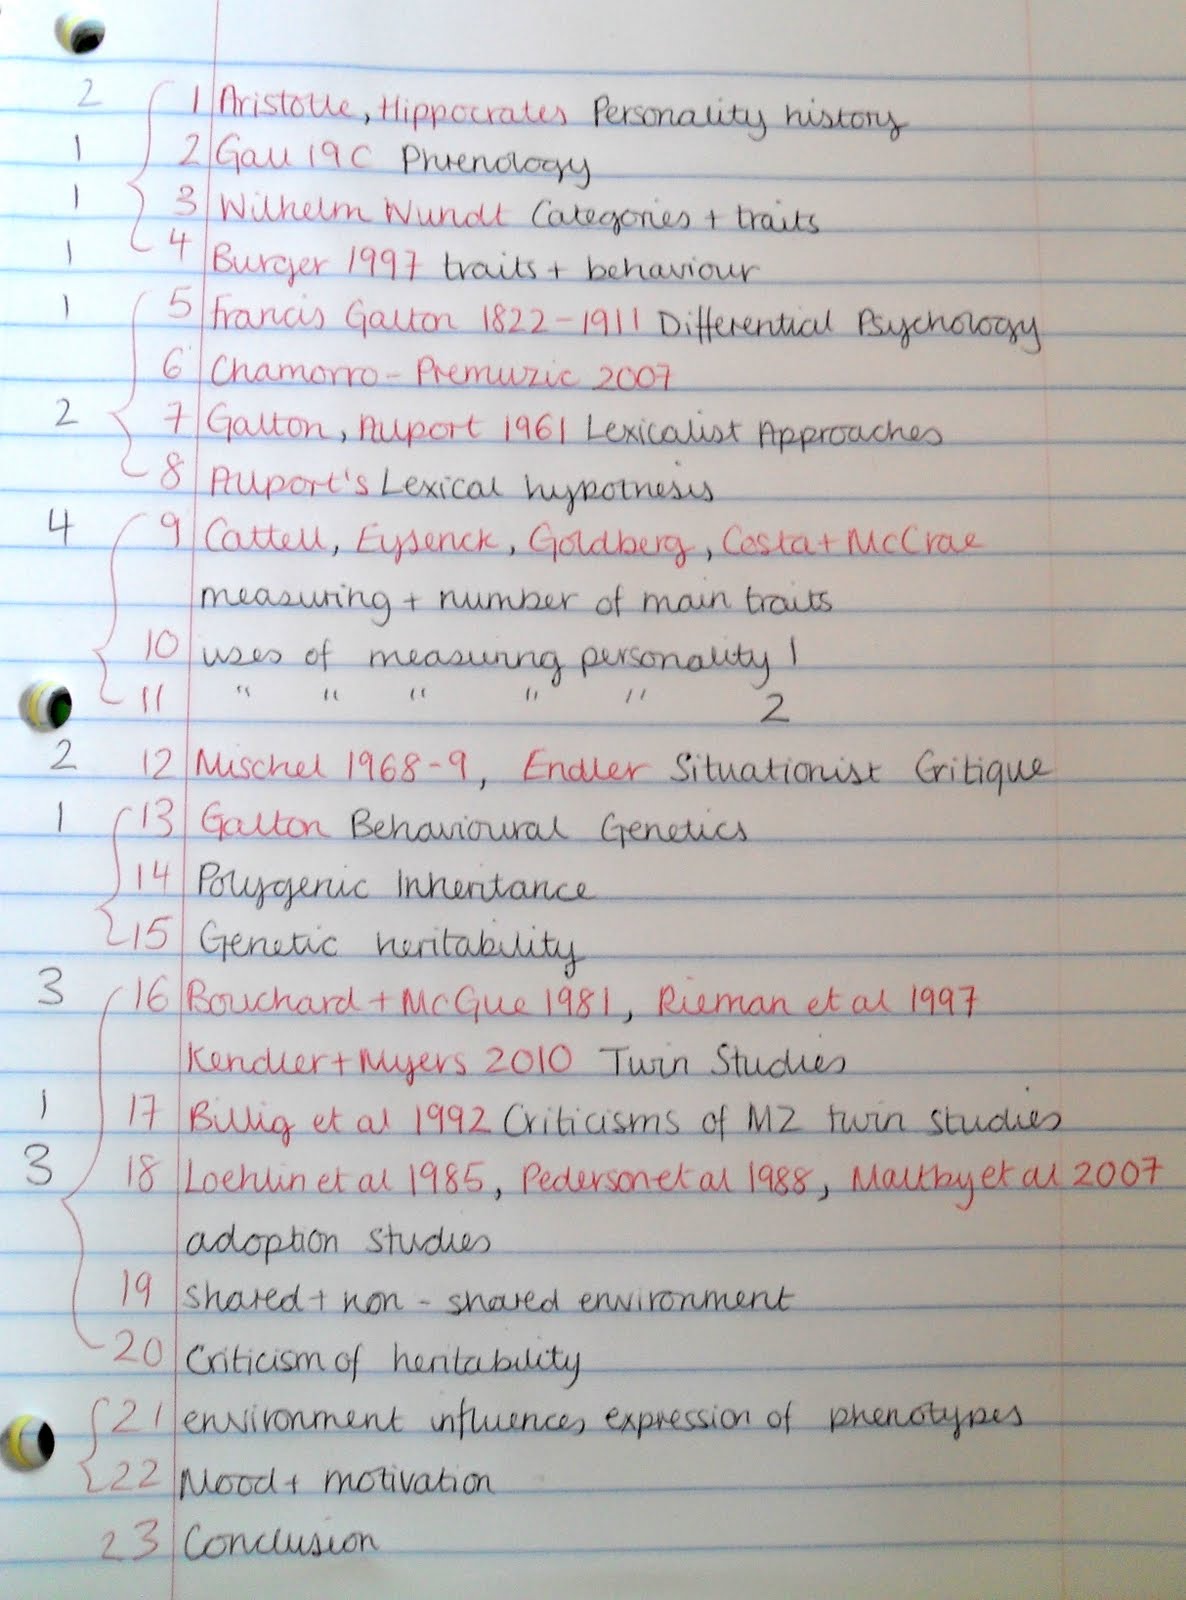 2 1 Aristotle, Hippocrates Personality history
1 2 Gall 19C Phrenology
1 3 Wilhelm Wundt Categories + traits
1 4 Burger 1997 traits + behaviour
1 5 Francis Galton 1822-1911 Differential Psychology
6 Chamorro-Premuzic 2007
2 7 Galton, Allport 1961 Lexicalist Approaches
8 Allport's Lexical hypothesis
4 9 Cattell, Eysenck, Goldberg, Costa + McCrae
measuring + number of main traits
10 uses of measuring personality 1
11 " " " " " 2
2 12 Mischel 1968-9, Endler Situationist Critique
1 13 Galton Behavioural Genetics
14 Polygenic Inheritance
15 Genetic heritability
3 16 Bouchard + McGue 1981, Rieman et al 1997
Kendler + Myers 2010 Twin Studies
1 17 Billig et al 1992 Criticisms of MZ twin studies
3 18 Loehlin et al 1985, Pederson et al 1988, Maltby et al 2007
adoption studies
19 shared + non-shared environment
20 Criticism of heritability
21 environment influences expression of phenotypes
22 Mood + motivation
23 Conclusion